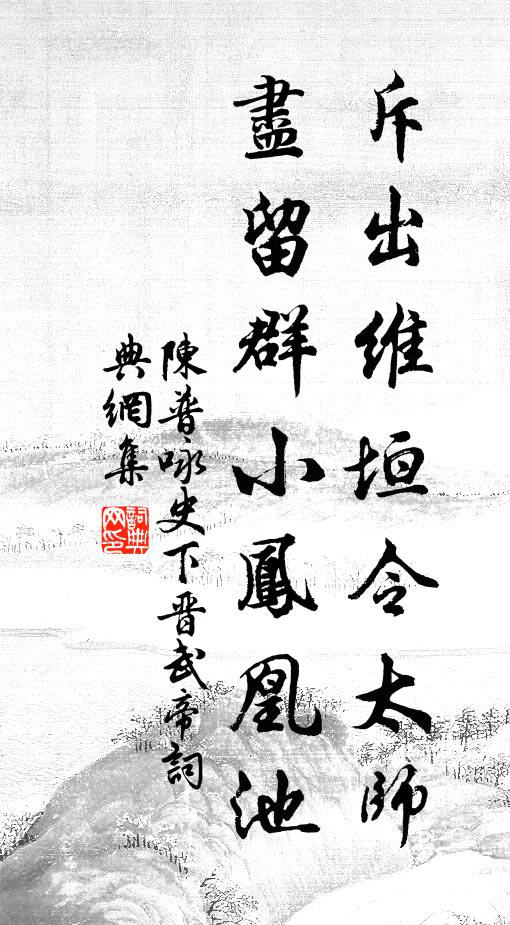 斥出維垣令太師
盡留群小鳳凰池
陳普詠史下晋武帝詞
典網集
詞典
网印